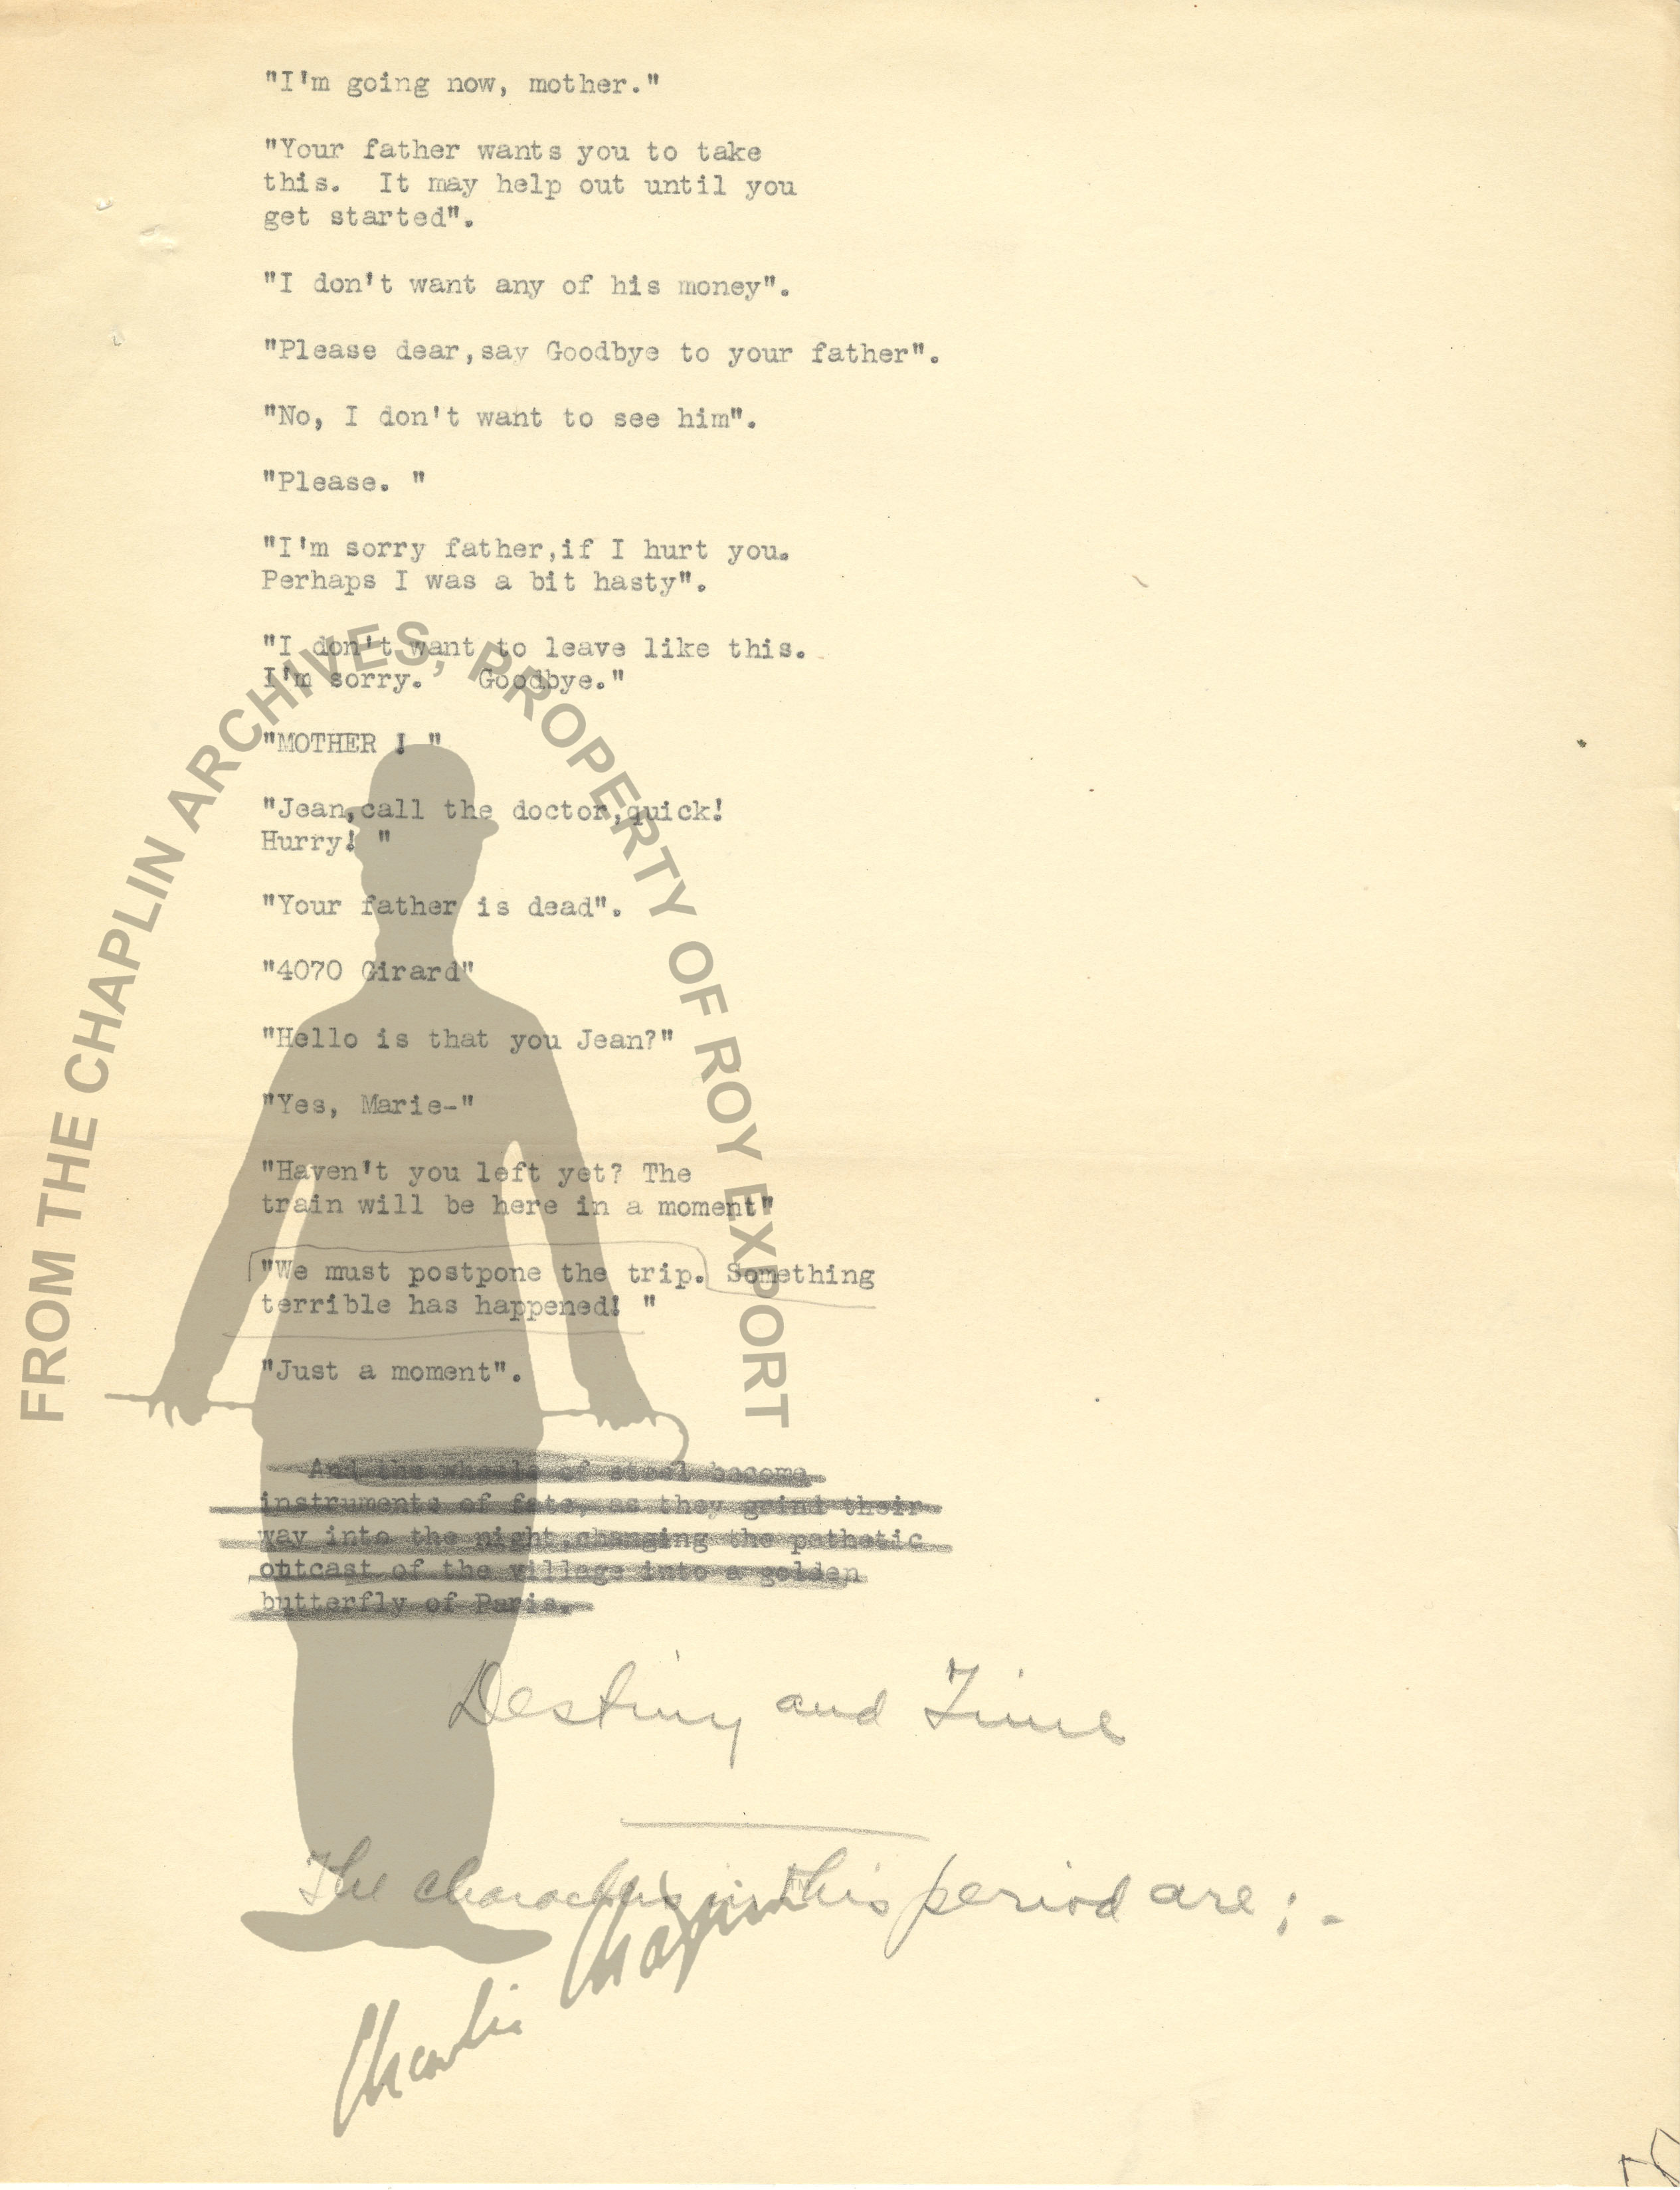 "I'm going now, mother."
"Your father wants you to take
this.  It may help out until you
get started".
"I don't want any of his money".
"Please dear,say Goodbye to your father".
"No, I don't want to see him".
"Please. "
"I'm sorry father,if I hurt you.
Perhaps I was a bit hasty".
"I don't want to leave like this.
I'm sorry.   Goodbye."
"MOTHER ! "
"Jean,call the doctor,quick!
Hurry! "
"Your father is dead".
"4070 Girard"
"Hello is that you Jean?"
"Yes, Marie-"
"Haven't you left yet? The
train will be here in a moment"
"We must postpone the trip. Something
terrible has happened! "
"Just a moment".
And the wheels of steel become
instruments of fate, as they grind their
way into the night,changing the pathetic
outcast of the village into a golden
butterfly of Paris.
Destiny and Time
The characters in this period are; -
Charlie Chaplin
FROM THE CHAPLIN ARCHIVES, PROPERTY OF ROY EXPORT